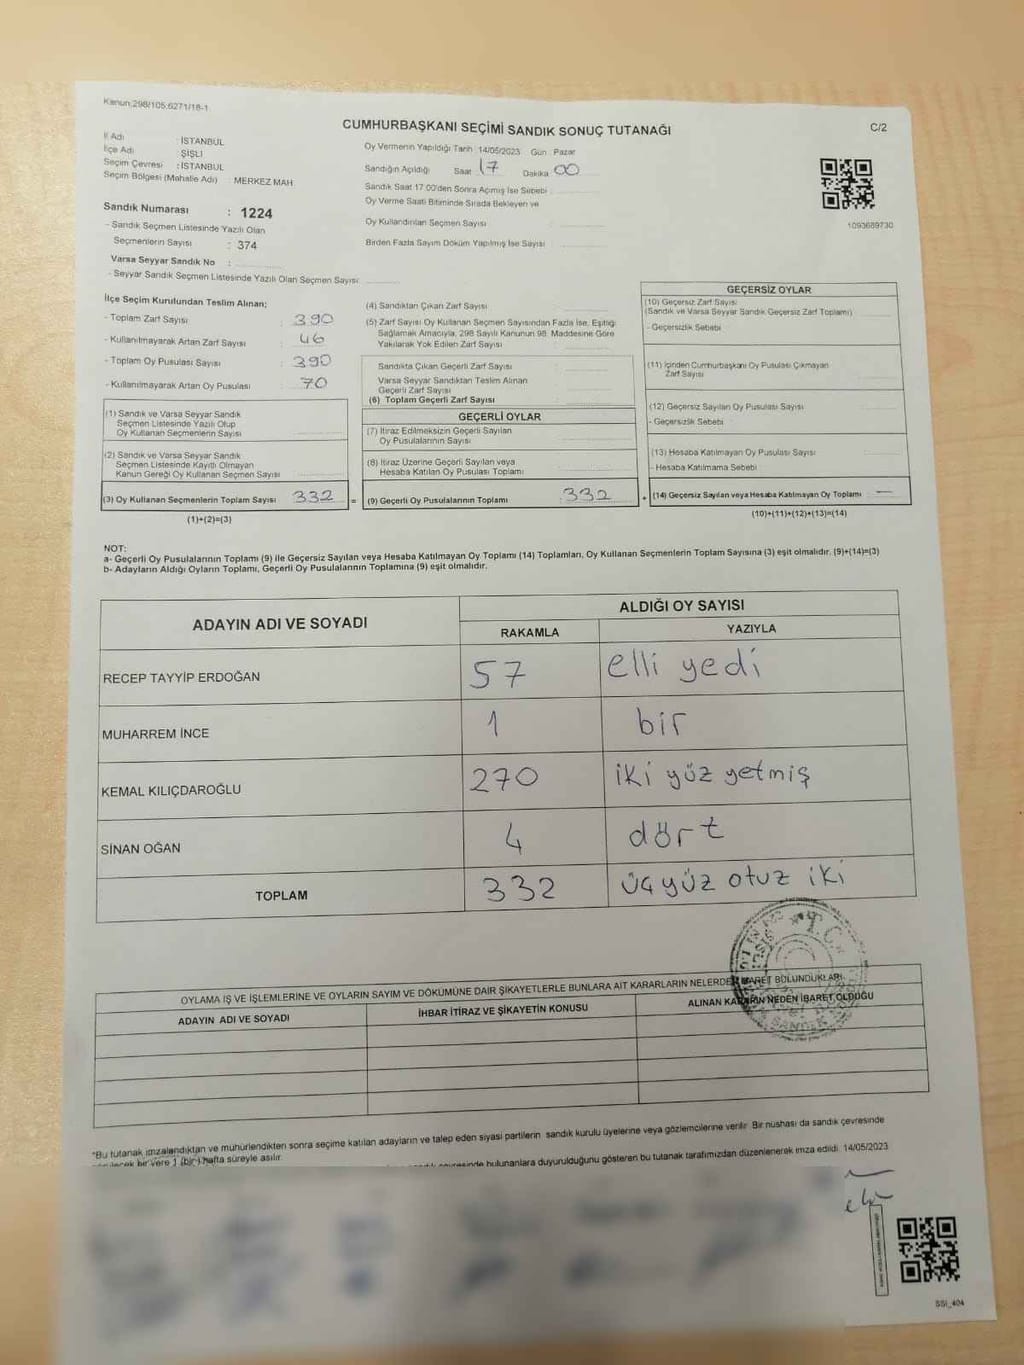 Kanun:298/105,6271/18-1
CUMHURBAŞKANI SEÇİMİ SANDIK SONUÇ TUTANAĞI
C/2
İl Adı : İSTANBUL
İlçe Adı : ŞİŞLİ
Seçim Çevresi : İSTANBUL
Seçim Bölgesi (Mahalle Adı) : MERKEZ MAH
Oy Vermenin Yapıldığı Tarih 14/05/2023 Gün : Pazar
Sandığın Açıldığı Saat 17 Dakika 00
Sandık Saat 17:00'den Sonra Açımış İse Sebebi :
Oy Verme Saati Bitiminde Sırada Bekleyen ve
Oy Kullandırılan Seçmen Sayısı
Birden Fazla Sayım Döküm Yapılmış İse Sayısı
1093689730
Sandık Numarası : 1224
- Sandık Seçmen Listesinde Yazılı Olan
Seçmenlerin Sayısı : 374
Varsa Seyyar Sandık No :
- Seyyar Sandık Seçmen Listesinde Yazılı Olan Seçmen Sayısı:
İlçe Seçim Kurulundan Teslim Alınan;
- Toplam Zarf Sayısı : 390
- Kullanılmayarak Artan Zarf Sayısı : 46
- Toplam Oy Pusulası Sayısı : 390
- Kullanılmayarak Artan Oy Pusulası : 70
(1) Sandık ve Varsa Seyyar Sandık
Seçmen Listesinde Yazılı Olup
Oy Kullanan Seçmenlerin Sayısı
(2) Sandık ve Varsa Seyyar Sandık
Seçmen Listesinde Kayıtlı Olmayan
Kanun Gereği Oy Kullanan Seçmen Sayısı
(3) Oy Kullanan Seçmenlerin Toplam Sayısı 332 =
(1)+(2)=(3)
(4) Sandıktan Çıkan Zarf Sayısı
(5) Zarf Sayısı Oy Kullanan Seçmen Sayısından Fazla İse, Eşitliği
Sağlamak Amacıyla, 298 Sayılı Kanunun 98. Maddesine Göre
Yakılarak Yok Edilen Zarf Sayısı
Sandıkta Çıkan Geçerli Zarf Sayısı
Varsa Seyyar Sandıktan Teslim Alınan
Geçerli Zarf Sayısı
(6) Toplam Geçerli Zarf Sayısı
GEÇERLİ OYLAR
(7) İtiraz Edilmeksizin Geçerli Sayılan
Oy Pusulalarının Sayısı
(8) İtiraz Üzerine Geçerli Sayılan veya
Hesaba Katılan Oy Pusulası Toplamı
(9) Geçerli Oy Pusulalarının Toplamı : 332 +
GEÇERSİZ OYLAR
(10) Geçersiz Zarf Sayısı
(Sandık ve Varsa Seyyar Sandık Geçersiz Zarf Toplamı)
- Geçersizlik Sebebi
(11) İçinden Cumhurbaşkanı Oy Pusulası Çıkmayan
Zarf Sayısı
(12) Geçersiz Sayılan Oy Pusulası Sayısı
- Geçersizlik Sebebi
(13) Hesaba Katılmayan Oy Pusulası Sayısı
- Hesaba Katılmama Sebebi
(14) Geçersiz Sayılan veya Hesaba Katılmayan Oy Toplamı —
(10)+(11)+(12)+(13)=(14)
NOT:
a- Geçerli Oy Pusulalarının Toplamı (9) ile Geçersiz Sayılan veya Hesaba Katılmayan Oy Toplamı (14) Toplamları, Oy Kullanan Seçmenlerin Toplam Sayısına (3) eşit olmalıdır. (9)+(14)=(3)
b- Adayların Aldığı Oyların Toplamı, Geçerli Oy Pusulalarının Toplamına (9) eşit olmalıdır.
ADAYIN ADI VE SOYADI
ALDIĞI OY SAYISI
RAKAMLA YAZIYLA
RECEP TAYYİP ERDOĞAN 57 elli yedi
MUHARREM İNCE 1 bir
KEMAL KILIÇDAROĞLU 270 iki yüz yetmiş
SİNAN OĞAN 4 dört
TOPLAM 332 üç yüz otuz iki
OYLAMA İŞ VE İŞLEMLERİNE VE OYLARIN SAYIM VE DÖKÜMÜNE DAİR ŞİKAYETLERLE BUNLARA AİT KARARLARIN NELERDEN İBARET BULUNDUKLARI
ADAYIN ADI VE SOYADI
İHBAR İTİRAZ VE ŞİKAYETİN KONUSU
ALINAN KARARIN NEDEN İBARET OLDUĞU
T.C.
*Bu tutanak imzalandıktan ve mühürlendikten sonra seçime katılan adayların ve talep eden siyasi partilerin sandık kurulu üyelerine veya gözlemcilerine verilir. Bir nüshası da sandık çevresinde
bir yere 1 (bir) hafta süreyle asılır.
bulunanlara duyurulduğunu gösteren bu tutanak tarafımızdan düzenlenerek imza edildi. 14/05/2023
SSI_404